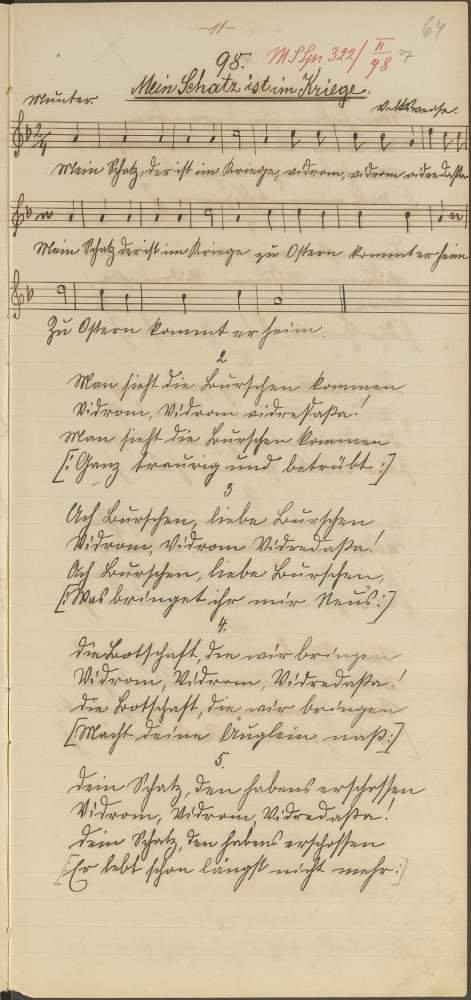 -11-
64
98.
MSLpr 322/II 98
Mein Schatz ist im Kriege.
Munter.
Volksweise.
2/4
Mein Schatz, der ist im Kriege, vidrom, vidrom vidredasta
Mein Schatz der ist im Kriege zu Ostern kommt er heim
Zu Ostern kommt er heim.
2
Man sieht die Burschen kommen
Vidrom, Vidrom vidredasta!
Man sieht die Burschen kommen
[: Ganz traurig und betrübt :]
3
Ach Burschen, liebe Burschen
Vidrom, Vidrom Vidredasta!
Ach Burschen, liebe Burschen,
[: Was bringet ihr mir Neus :]
4.
die Botschaft, die wir bringen
Vidrom, Vidrom, Vidredasta!
die Botschaft, die wir bringen
[: Macht deine Äuglein naß :]
5.
dein Schatz, den habens erschossen
Vidrom, Vidrom, Vidredasta!
dein Schatz, den habens erschossen
[: Er lebt schon längst nicht mehr :]